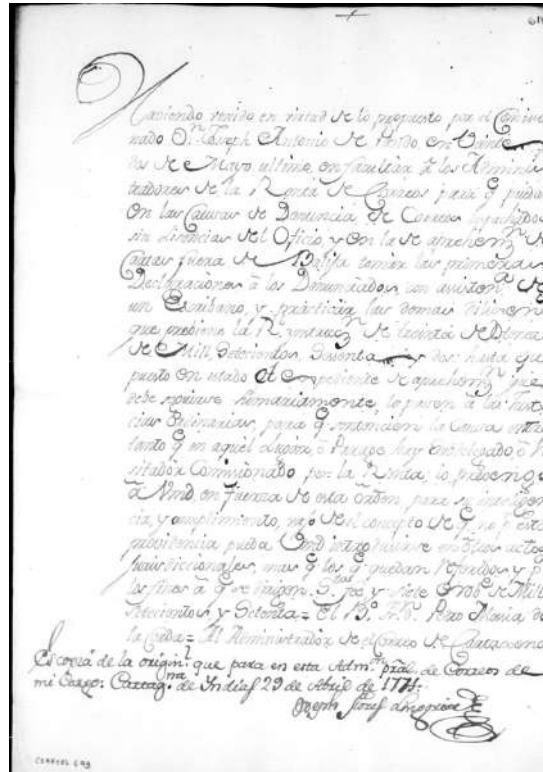 Haviendo venido en virtud de lo propuesto por el Comisio
nado Dn. Joseph Antonio de Pando en Veinte y
dos de Mayo ultimo, en facultar â los Adminis
tradores de la Renta de Correos para q̃ puedan
en las Causas de Denuncia, de Correos
sin licencias del Oficio, y en la de aprehenn. de
Cartas fuera de Balija tomar las primeras
Declaraciones â los Denunciados, con assistena. de
un Escribano, y practicar las demas diligen
que previene la Rl. instrucn. de treinta de
de Mill, Setecientos, Sesenta y dos: hasta que
puesto en estado el expediente de aprehenn. que
debe seguirse sumariamente, lo pasen â las Justi
cias ordinarias, para q̃ sentencien la Causa entre
tanto q̃ en aquel Lugar, ô Parage hay Subdelegado ô Vi
sitador Comisionado por la Renta: lo prevengo
â Vmd en fuerza de esta orden para su inteligen
cia, y cumplimiento, vajo de el concepto de q̃ no p. esta
providencia pueda Vmd introducirse en otros actos
jurisdiccionales, mas q̃ los q̃ quedan referidos y p.
los fines â q̃ se dirigen. y siete de Mill
Setecientos y Setenta = El Bo. Fr. Dn. Pedro Maria de
la Cerda = Al Administrador de el Correo de Cartagena
Es copia de la originl. que para en esta Admn. pral. de Correos de
mi Cargo. Cartagna. de Indias 29 de Abril de 1771.
Joseph
CORREOS, 6 R 9